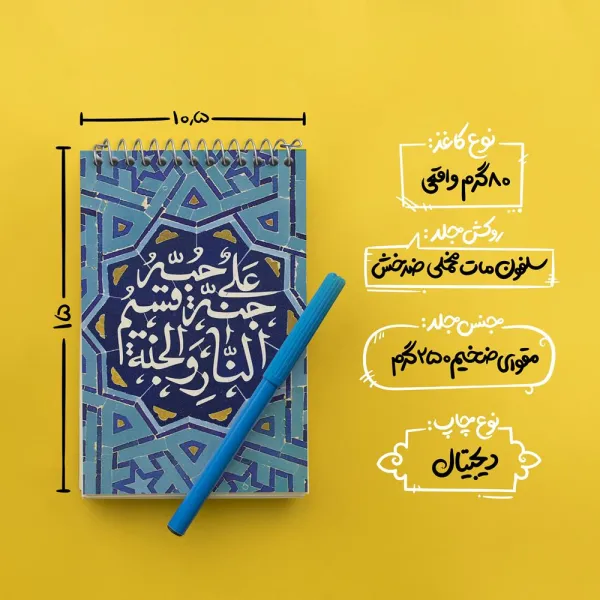 ۱۰٫۵
۱۵
علی حبه
جنة قسیم
النار والجنة
نوع کاغذ:
۸۰گرم واقعی
روکش مجلد:
سلفون مات مخملی ضدخش
جنس مجلد:
مقوای ضخیم ۲۵۰گرم
نوع چاپ:
دیجیتال